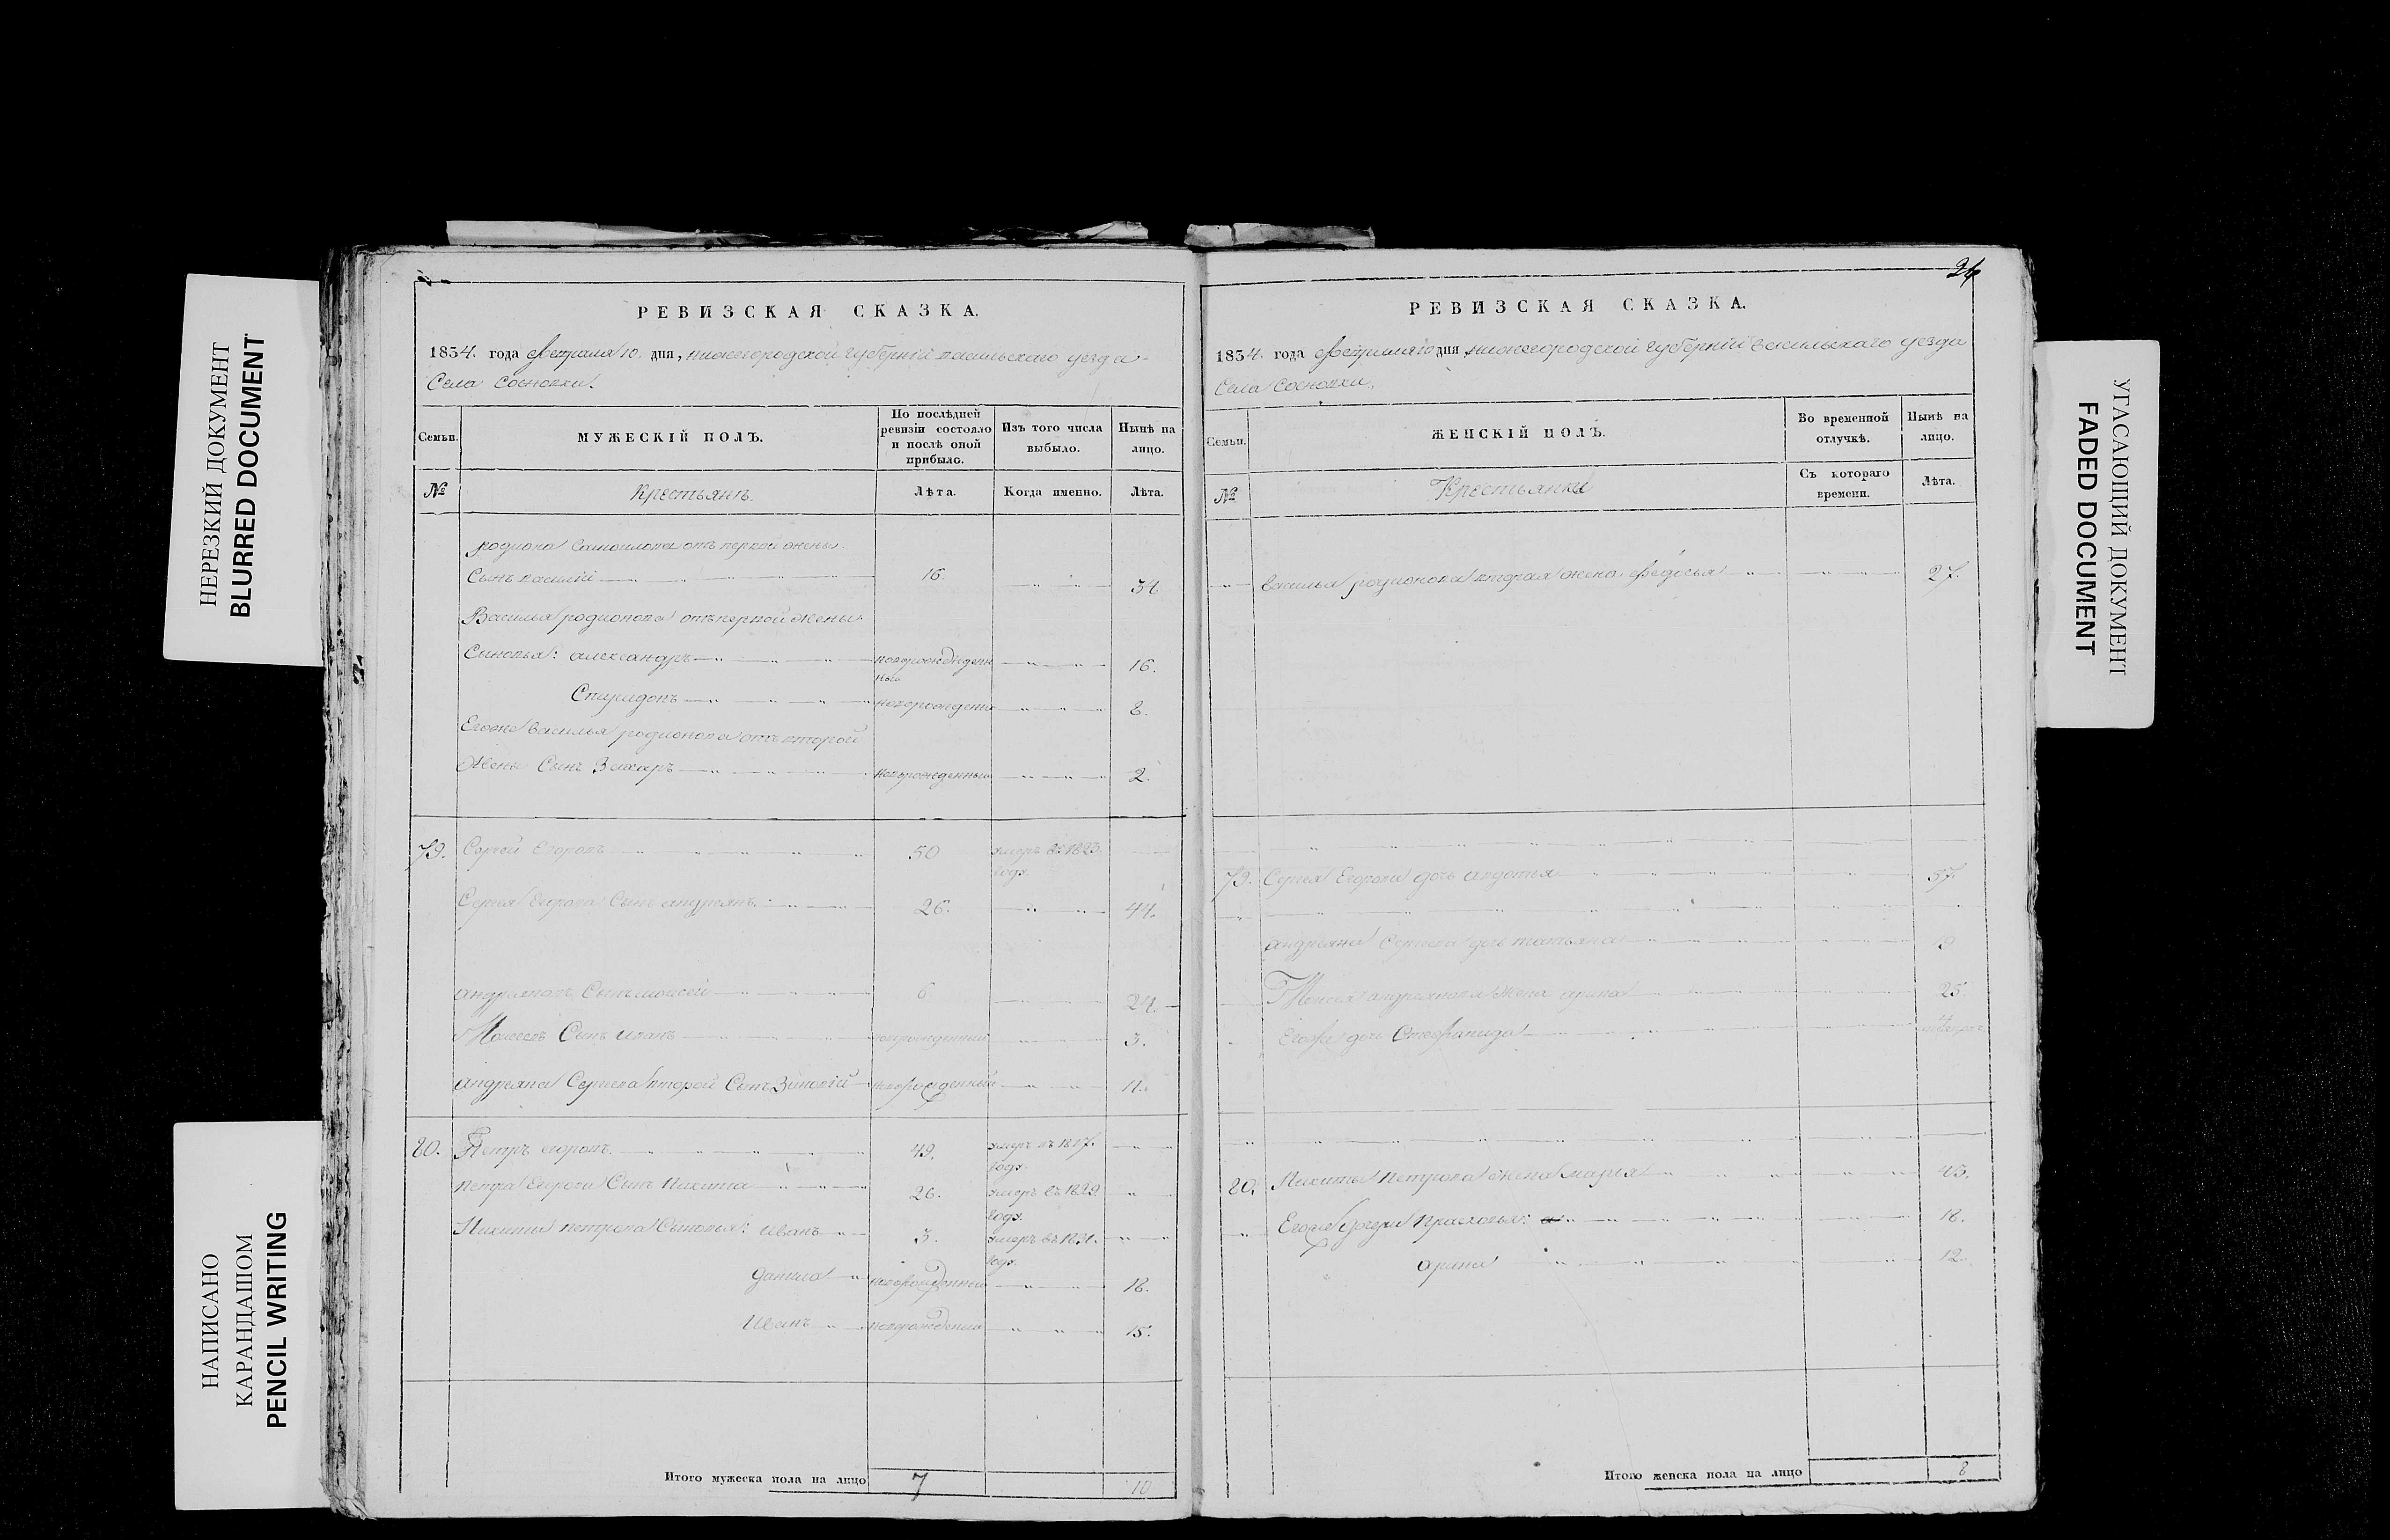 НЕРЕЗКИЙ ДОКУМЕНТ
BLURRED DOCUMENT
НАПИСАНО
КАРАНДАШОМ
PENCIL WRITING
РЕВИЗСКАЯ СКАЗКА.
1834. года Февраля 10. дня, нижегородской губернiи васильскаго уезда
Села Сосновки.
Семьи.
МУЖЕСКIЙ ПОЛЪ.
По послѣдней
ревизiи состояло
и послѣ оной
прибыло.
Изъ того числа
выбыло.
Нынѣ на
лицо.
№
Крестьянъ.
Лѣта.
Когда именно.
Лѣта.
родиона Самоилова отъ первой жены.
Сынъ василiй 16. 34
Василья родионова отъ первой жены
Сыновья: александръ новорожденный 16.
новорожденн 8.
Егоже василья родионова отъ второй
Жены Сынъ Захаръ новорожденный 2.
79. Сергей Егоровъ 50 умеръ въ 1823. годе.
Сергея Егорова Сынъ андреянъ 26. 44.
андреяновъ Сынъ моисей 6 24.
Моисеевъ Сынъ иванъ новорожденный 3.
андреяна Сергеева второй Сынъ Зиновiй новорожденный 11.
80. Петръ егоровъ 49. умеръ въ 1817. годе.
Петра Егорова Сынъ Никита 26. умеръ въ 1829 годе.
Никиты петрова Сыновья: иванъ 3. умеръ въ 1831. годе.
данила новорожденный 18.
иванъ новорожденный 15.
Итого мужеска пола на лицо 7 10
26
РЕВИЗСКАЯ СКАЗКА.
1834. года Февраля 10 дня нижегородской губернiи васильскаго уезда
Села Сосновки,
Семьи.
ЖЕНСКIЙ ПОЛЪ.
Во временной
отлучкѣ.
Нынѣ на
лицо.
№
Крестьянки
Съ котораго
времени.
Лѣта.
Василья родионова вторая жена Федосья 27.
79. Сергея Егорова дочь авдотья 57.
андреяна Сергеева дочь татьяна 19
Моисея андреянова жена арина 25.
Егоже дочь Стефанида 4
80. Никиты петрова жена марья 43.
Егоже дочери прасковья: 18.
арина 12.
Итого женска пола на лицо 8
УГАСАЮЩИЙ ДОКУМЕНТ
FADED DOCUMENT